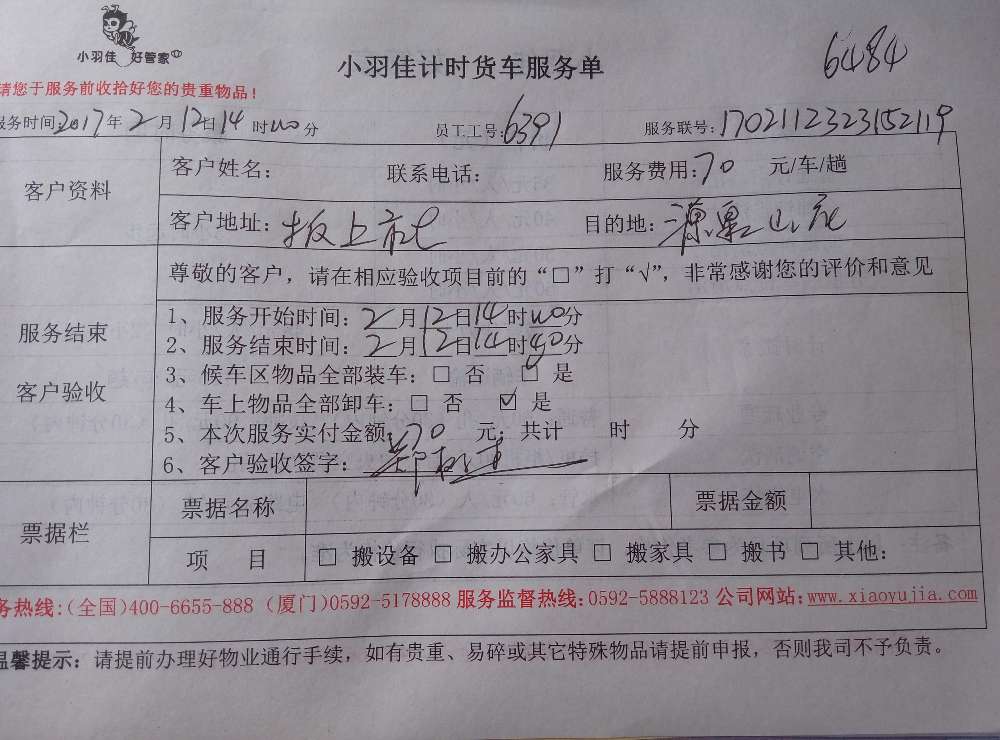 小羽佳 好管家
小羽佳计时货车服务单
6484
请您于服务前收拾好您的贵重物品!
服务时间:2017年2月12日14时40分 员工工号:6391 服务联号:1702112323152119
客户资料
客户姓名: 联系电话: 服务费用:70 元/车/趟
客户地址:板上社 目的地:源昌山庄
尊敬的客户,请在相应验收项目前的“□”打“√”,非常感谢您的评价和意见
服务结束
客户验收
1、服务开始时间:2月12日14时40分
2、服务结束时间:2月12日14时90分
3、候车区物品全部装车:□ 否 □ 是
4、车上物品全部卸车:□ 否 ☑ 是
5、本次服务实付金额:70 元;共计 时 分
6、客户验收签字:
票据栏
票据名称 票据金额
项 目 □ 搬设备 □ 搬办公家具 □ 搬家具 □ 搬书 □ 其他:
务热线:(全国)400-6655-888 (厦门)0592-5178888 服务监督热线:0592-5888123 公司网站:www.xiaoyujia.com
温馨提示:请提前办理好物业通行手续,如有贵重、易碎或其它特殊物品请提前申报,否则我司不予负责。